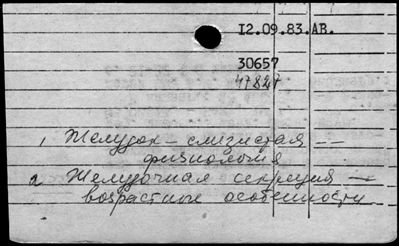 12.09.83.АВ.
30657
47827
1, Желудок – слизистая --
физиология
2 Желудочная секреция –
возрастные особенности